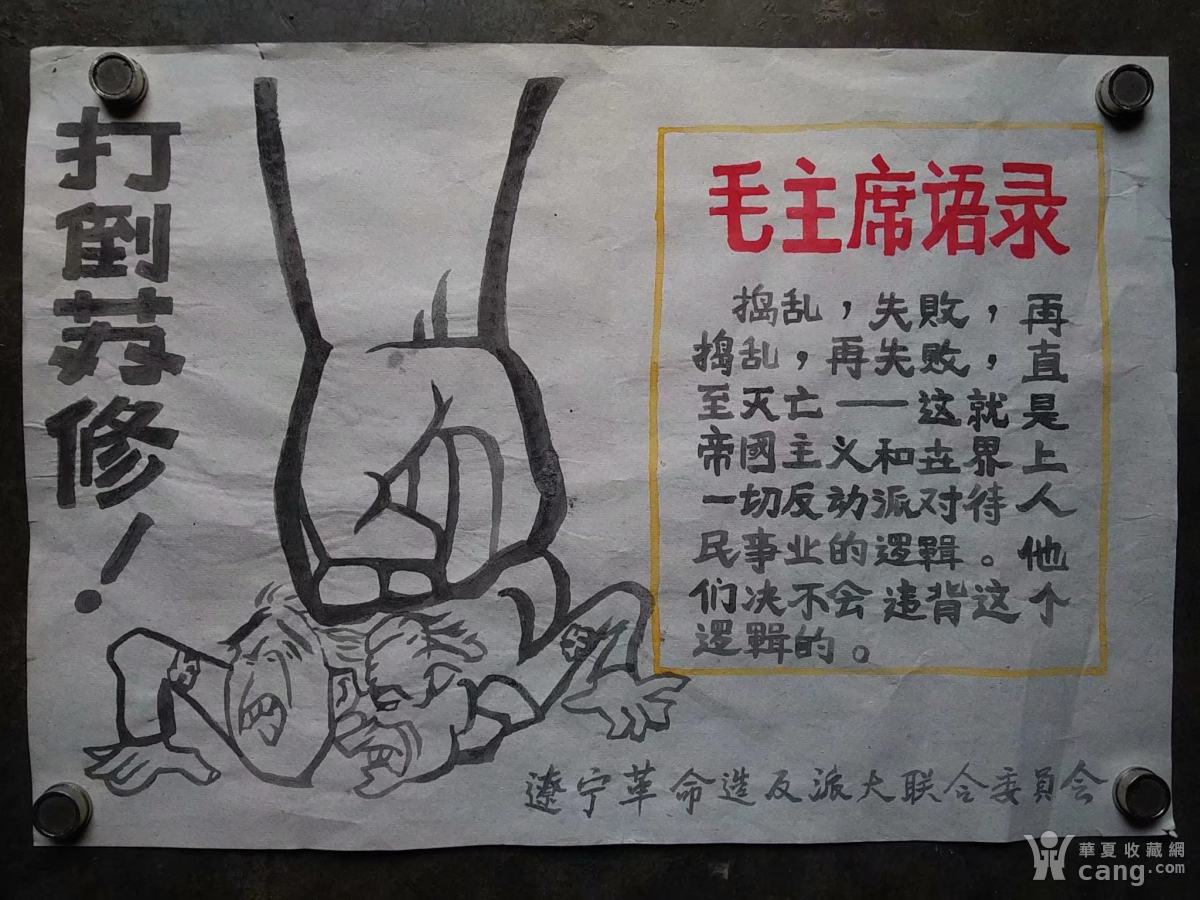 打倒苏修！
毛主席语录
捣乱，失败，再
捣乱，再失败，直
至灭亡——这就是
帝國主义和世界上
一切反动派对待人
民事业的逻辑。他
们决不会违背这个
逻辑的。
遼宁革命造反派大联合委員会
華夏收藏網
cang.com